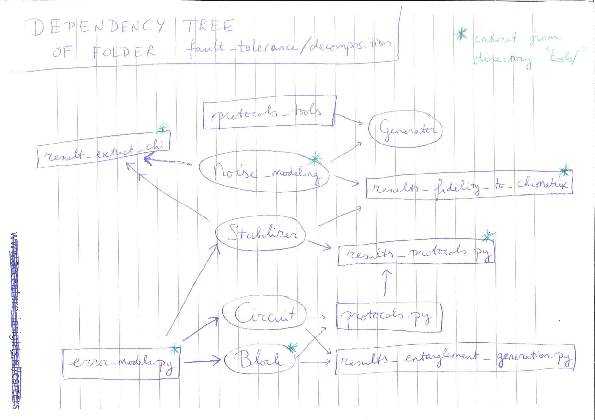 DEPENDENCY TREE
OF FOLDER fault_tolerance/decomposition
* inherit from
directory "tools/"
protocols_tools
Generator
result_extract_chi *
Noise_modeling *
results_fidelity_to_chimatrix *
Stabilizer
results_protocols.py *
Circuit
protocols.py
error_models.py *
Block *
results_entanglement_generation.py